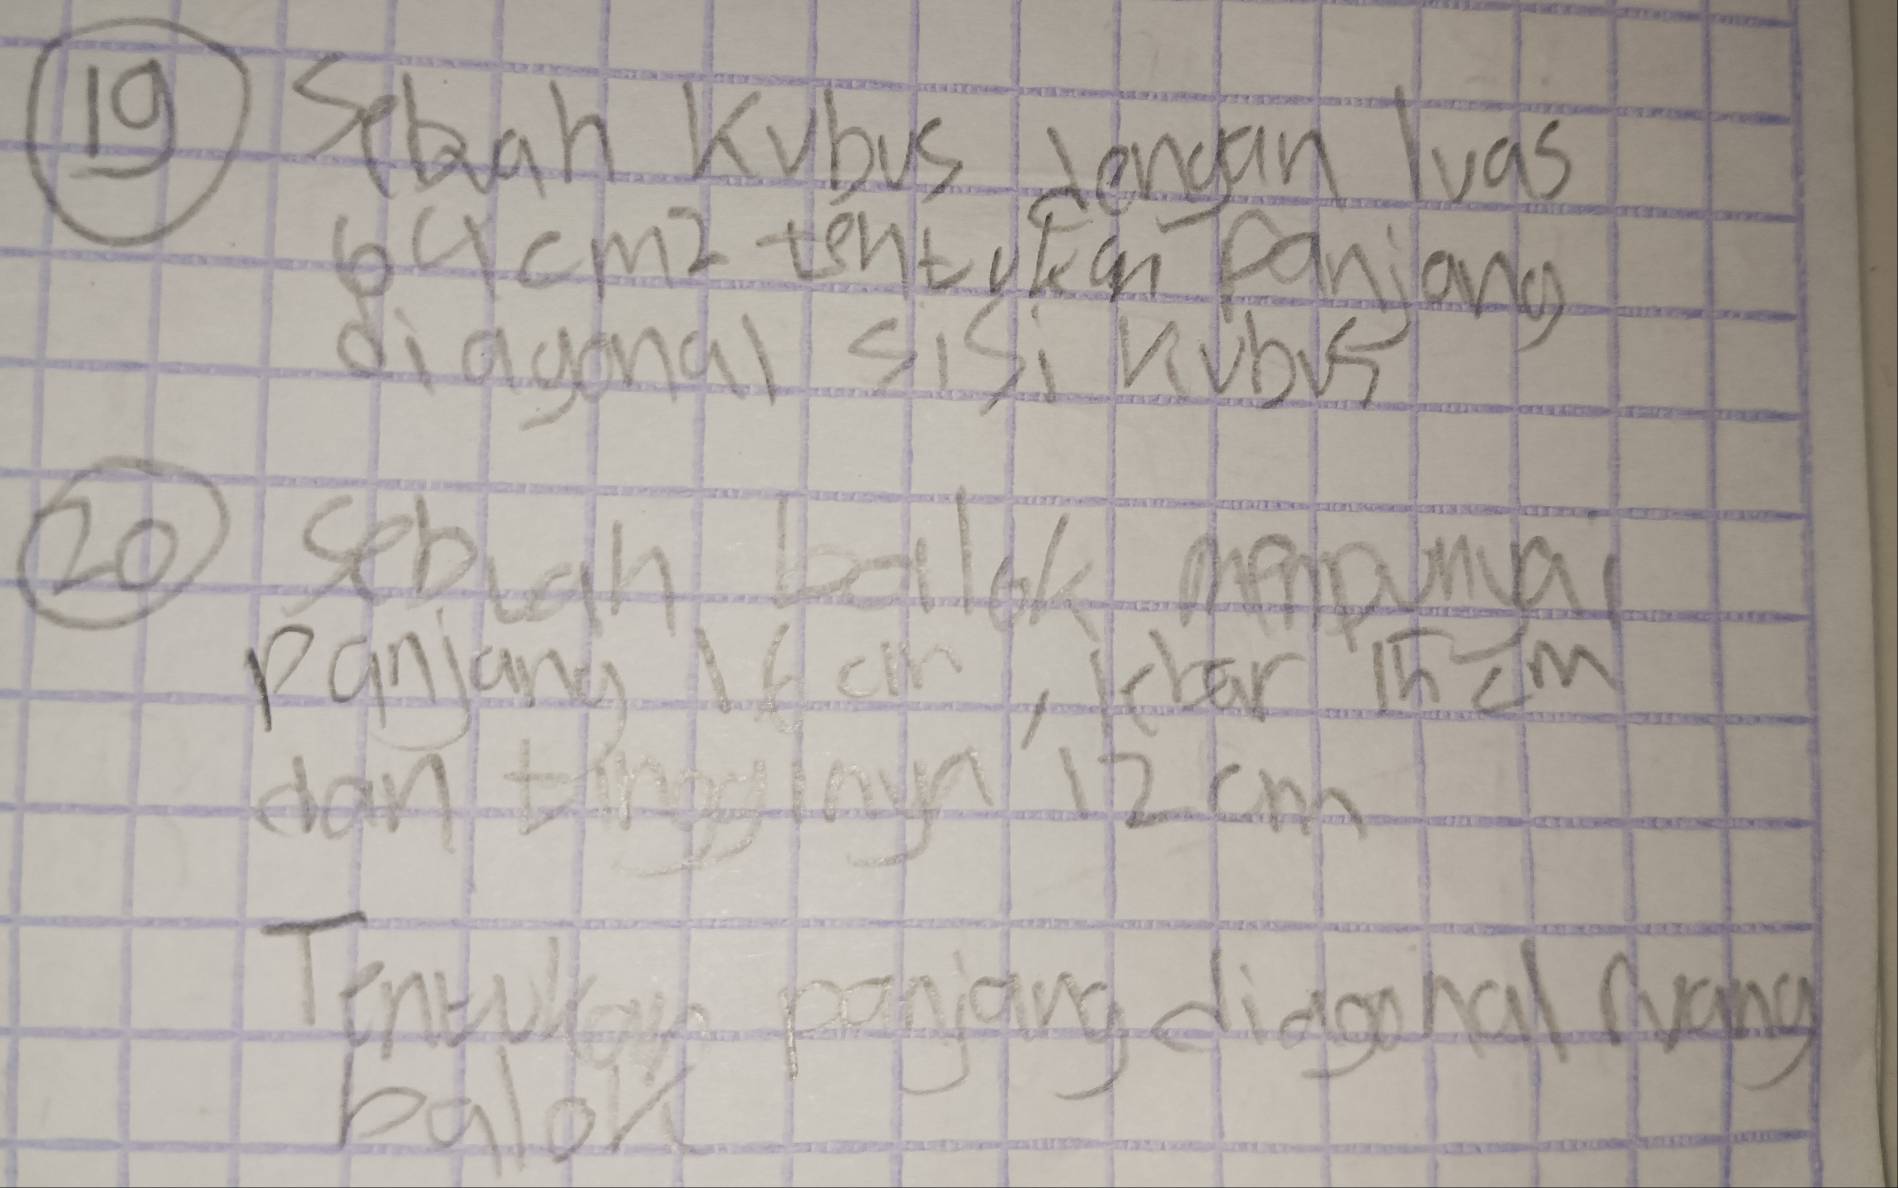 19 Sebuah Kubus dengan luas
64 cm2 tentukan Panjang
diagonal sisi Kubus
20 Sebuah balok mempunyai
Panjang 16 cm, lebar 15 cm
dan tingginya 12 cm
Tentukan panjang diagonal ruang
balok